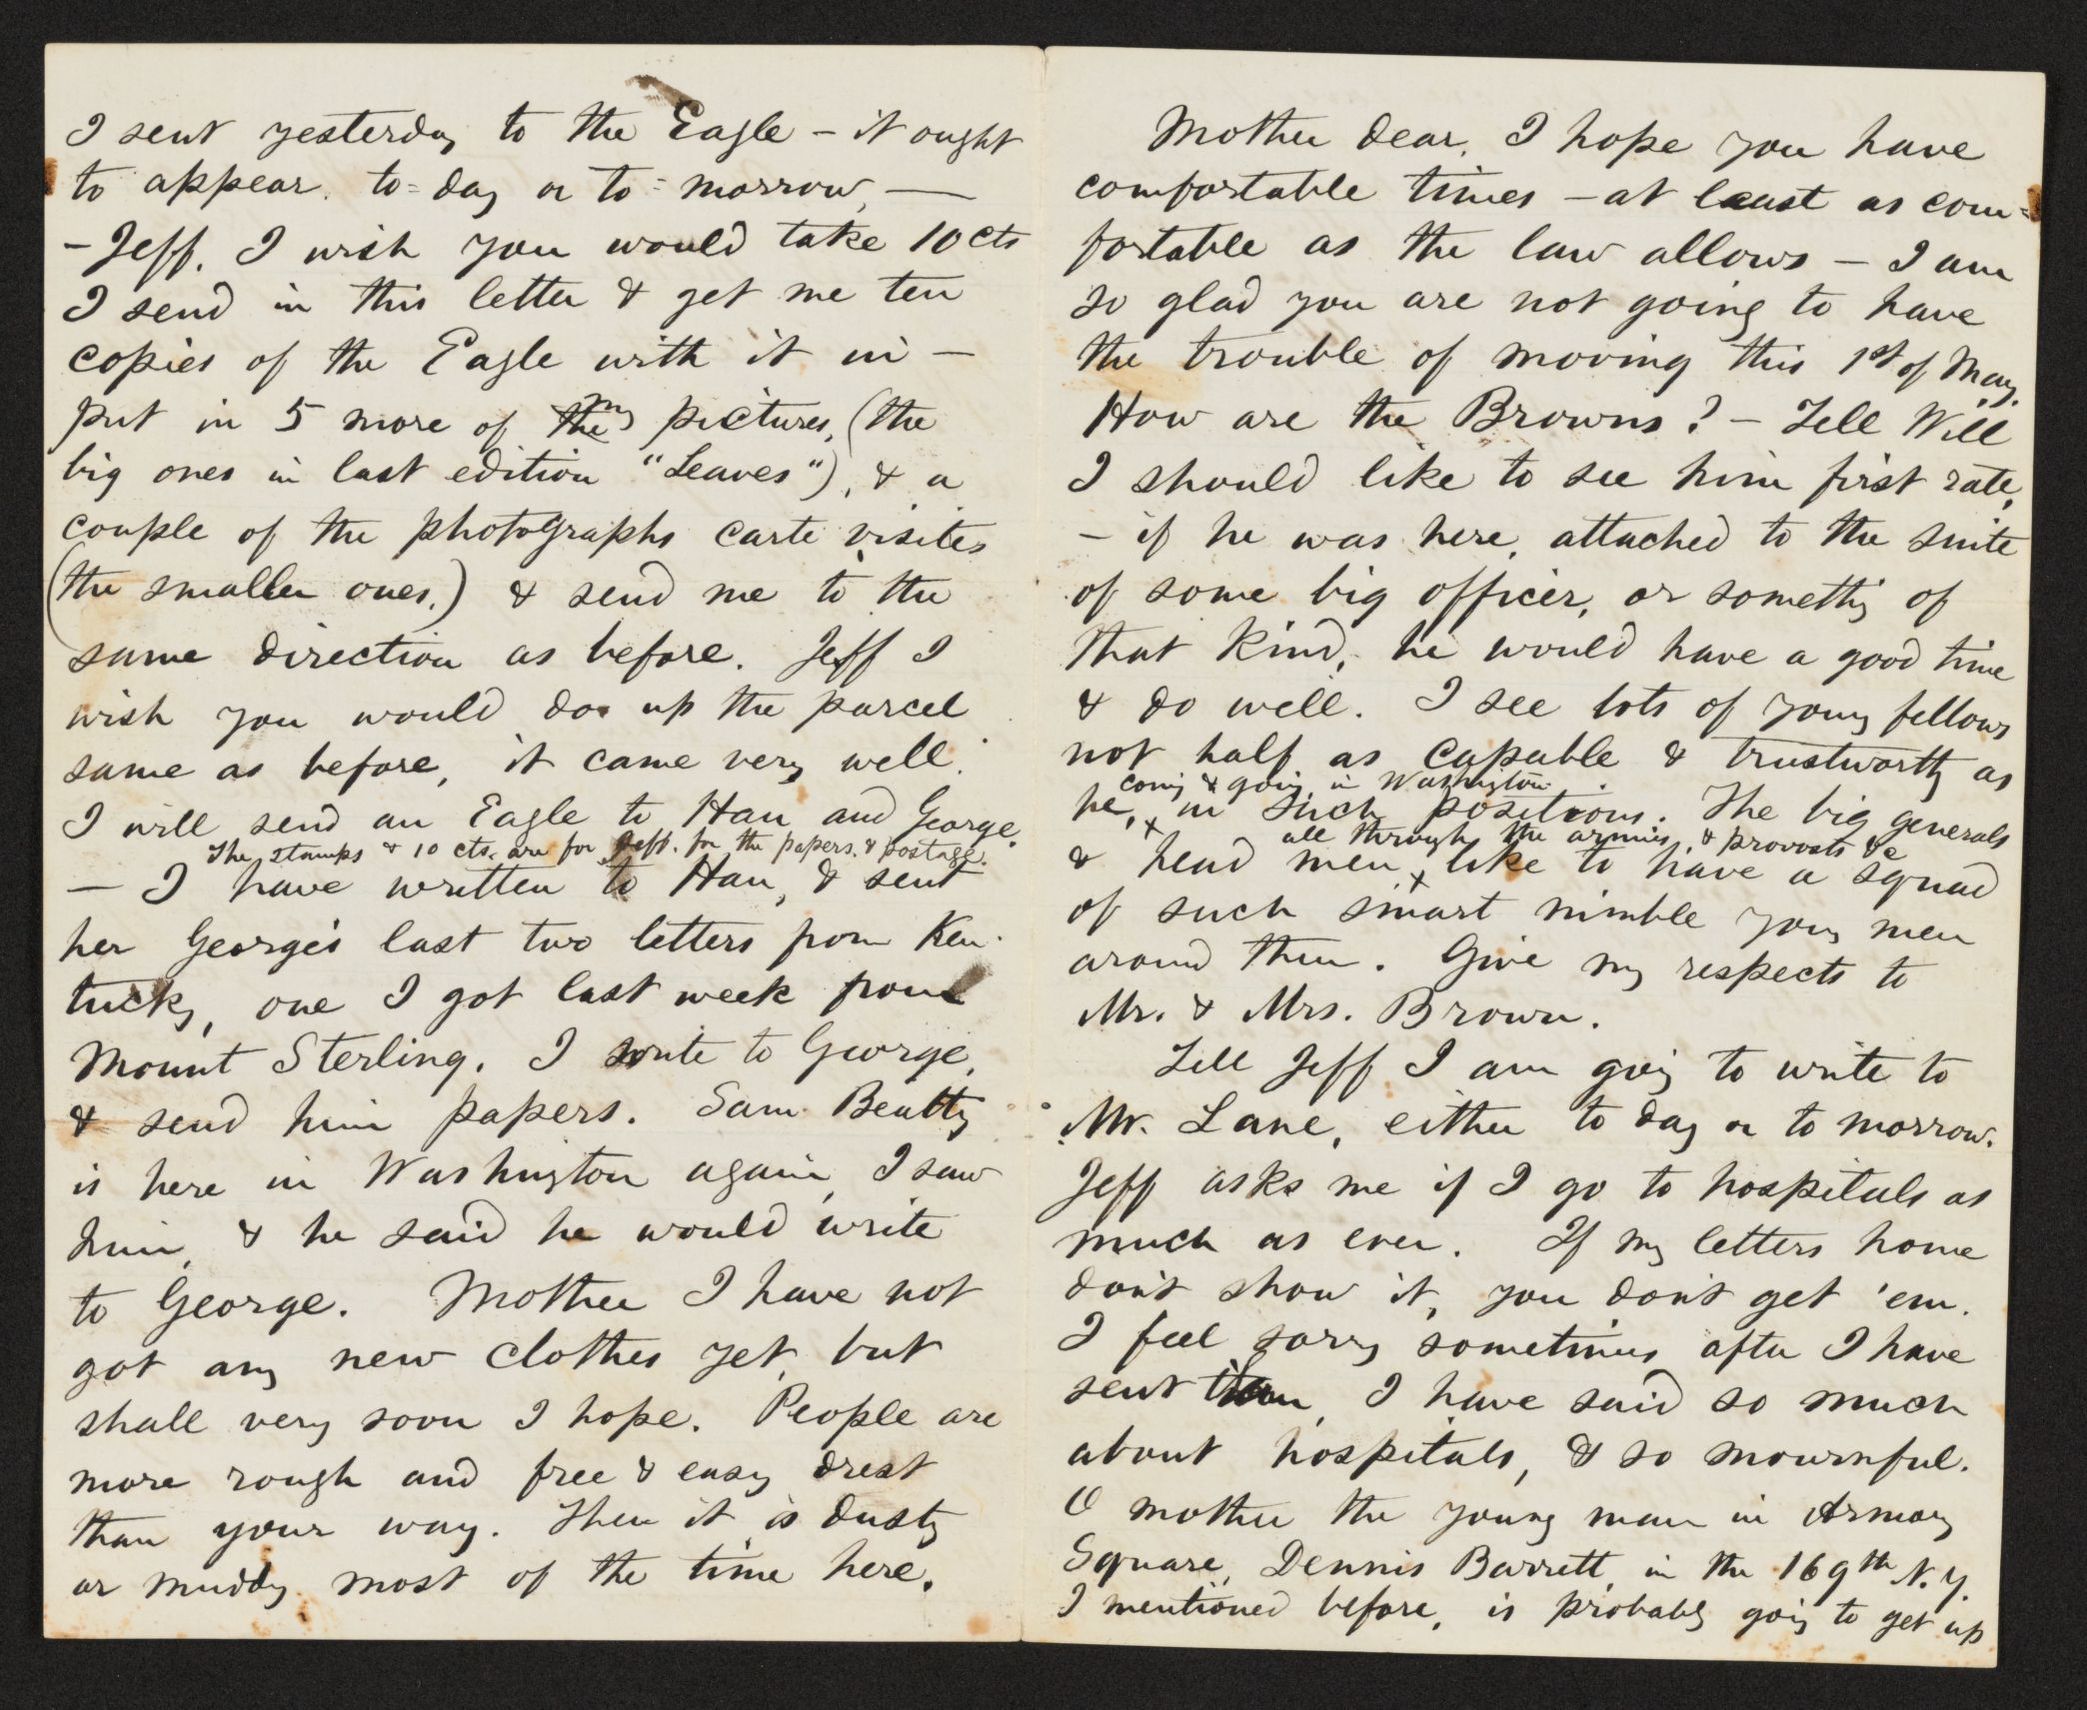 I sent yesterday to the Eagle – it ought
to appear. to=day or to=morrow, —
– Jeff. I wish you would take 10 cts
I send in this letter & get me ten
copies of the Eagle with it in –
put in 5 more of the my pictures, (the
big ones in last edition "Leaves"), & a
couple of the photographs carte visites
(the smaller ones.) & send me to the
same direction as before. Jeff I
wish you would do up the parcel
same as before, it came very well.
I will send an Eagle to Han and George.
The stamps & 10 cts. are for Jeff. for the papers. & postage.
— I have written to Han, & sent
her George's last two letters from Ken-
tucky, one I got last week from
Mount Sterling. I write to George,
& send him papers. Sam Beatty
is here in Washington again, I saw
him, & he said he would write
to George. Mother I have not
got any new clothes yet, but
shall very soon I hope. People are
more rough and free & easy drest
than your way. Then it is dusty
or muddy most of the time here.
Mother dear, I hope you have
comfortable times – at least as com=
fortable as the law allows – I am
so glad you are not going to have
the trouble of moving this 1st of May.
How are the Browns? – Tell Will
I should like to see him first rate,
– if he was here, attached to the suite
of some big officer, or something of
that kind, he would have a good time
& do well. I see lots of young fellows
not half as capable & trustworthy as
coming & going in Washington
he, x in such positions. The big generals
all through the armies, & provosts &c
& head men x like to have a squad
of such smart nimble young men
around them. Give my respects to
Mr. & Mrs. Brown.
Tell Jeff I am going to write to
Mr. Lane, either to day or to morrow.
Jeff asks me if I go to hospitals as
much as ever. If my letters home
don't show it, you don't get 'em.
I feel sorry sometimes after I have
sent them, I have said so much
about hospitals, & so mournful.
O mother the young man in Armory
Square, Dennis Barrett, in the 169th N.Y.
I mentioned before, is probably going to get up